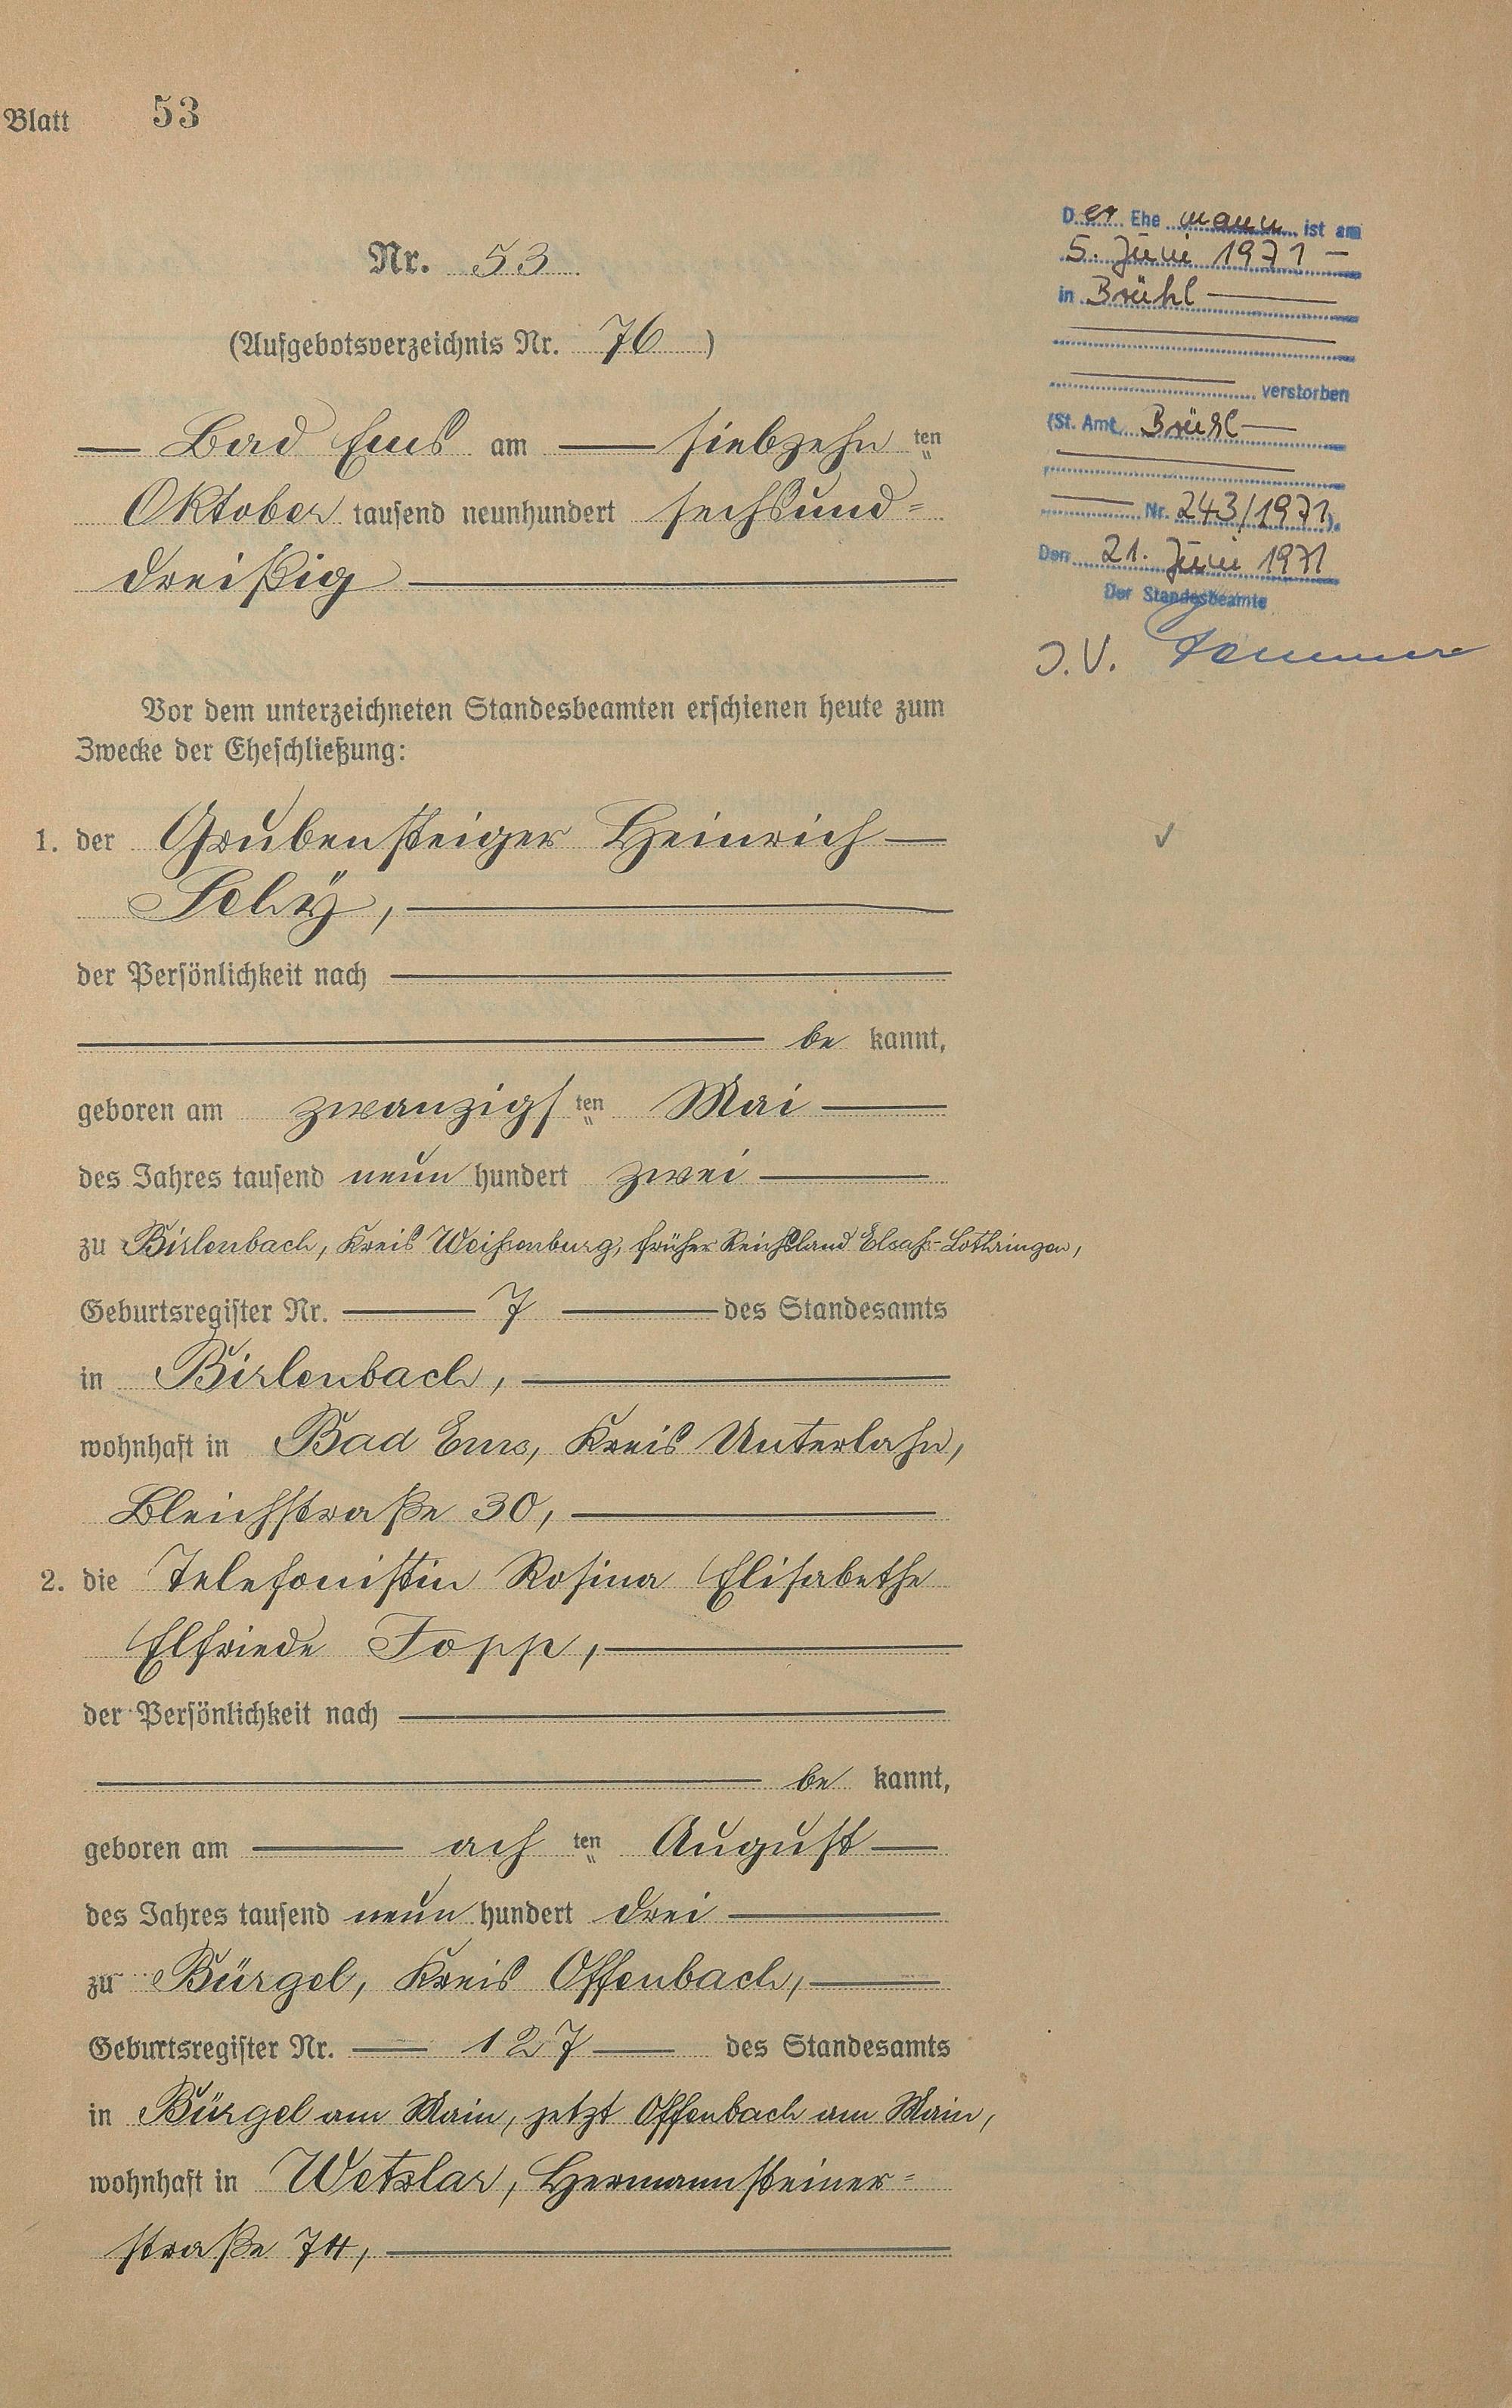 Blatt 53
Nr. 53
(Aufgebotsverzeichnis Nr. 76)
Bad Ems am siebzehn ten
Oktober tausend neunhundert sechsund=
dreißig
Vor dem unterzeichneten Standesbeamten erschienen heute zum
Zwecke der Eheschließung:
1. der Grubensteiger Heinrich
der Persönlichkeit nach
be kannt,
geboren am zwanzigs ten Mai
des Jahres tausend neun hundert zwei
zu Birlenbach, Kreis Weißenburg, früher Reichsland Elsaß-Lothringen,
Geburtsregister Nr. 7 des Standesamts
in Birlenbach,
wohnhaft in Bad Ems, Kreis Unterlahn,
Bleichstraße 30,
2. die Telefonistin Rosina Elisabethe
Elfriede Topp,
der Persönlichkeit nach
be kannt,
geboren am ach ten August
des Jahres tausend neun hundert drei
zu Bürgel, Kreis Offenbach,
Geburtsregister Nr. 127 des Standesamts
in Bürgel am Main, jetzt Offenbach am Main,
wohnhaft in Wetzlar, Hermannsteiner=
straße 74,
Der Ehemann ist am
5. Juni 1971 –
in Brühl
verstorben
(St. Amt Brühl
Nr. 243/1971).
Den 21. Juni 1971
Der Standesbeamte
J.V.